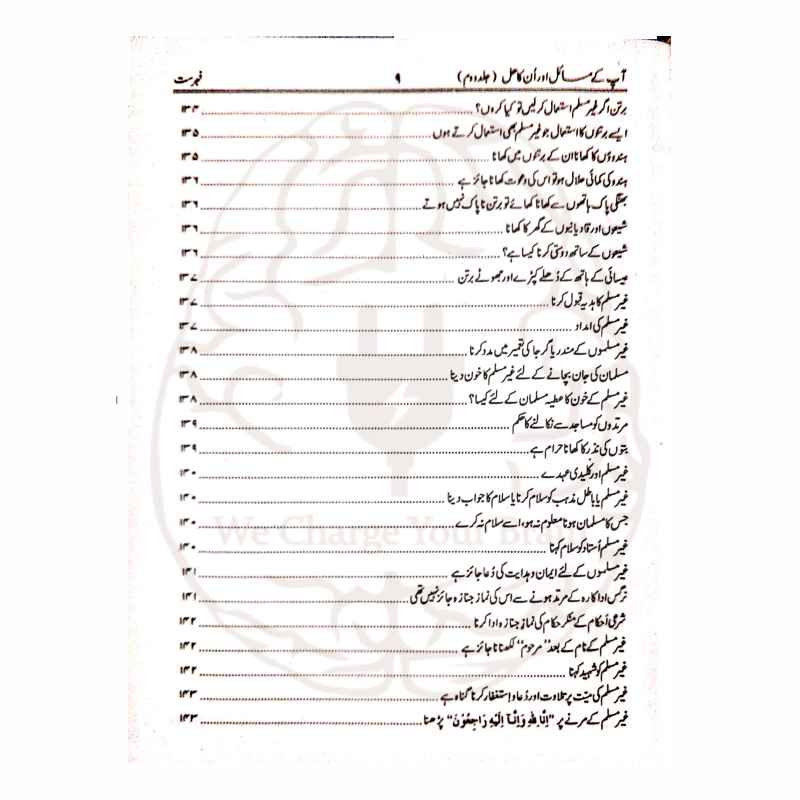 آپ کے مسائل اور اُن کا حل (جلد دوم) ۹ فہرست
برتن اگر غیر مسلم استعمال کرلیں تو کیا کروں؟ ۱۳۴
ایسے برتنوں کا استعمال جو غیر مسلم بھی استعمال کرتے ہوں ۱۳۵
ہندوؤں کا کھانا ان کے برتنوں میں کھانا ۱۳۵
ہندو کی کمائی حلال ہو تو اس کی دعوت کھانا جائز ہے ۱۳۶
بھنگی پاک ہاتھوں سے کھانا کھائے تو برتن ناپاک نہیں ہوتے ۱۳۶
شیعوں اور قادیانیوں کے گھر کا کھانا ۱۳۶
شیعوں کے ساتھ دوستی کرنا کیسا ہے؟ ۱۳۶
عیسائی کے ہاتھ کے دُھلے کپڑے اور جھوٹے برتن ۱۳۷
غیر مسلم کا ہدیہ قبول کرنا ۱۳۷
غیر مسلم کی امداد ۱۳۷
غیر مسلموں کے مندر یا گرجا کی تعمیر میں مدد کرنا ۱۳۸
مسلمان کی جان بچانے کے لئے غیر مسلم کا خون دینا ۱۳۸
غیر مسلم کے خون کا عطیہ مسلمان کے لئے کیسا؟ ۱۳۸
مرتدوں کو مساجد سے نکالنے کا حکم ۱۳۹
بتوں کی نذر کا کھانا حرام ہے ۱۳۹
غیر مسلم اور کلیدی عہدے ۱۴۰
غیر مسلم یا باطل مذہب کو سلام کرنا یا سلام کا جواب دینا ۱۴۰
جس کا مسلمان ہونا معلوم نہ ہو، اسے سلام نہ کرے ۱۴۰
غیر مسلم اُستاد کو سلام کہنا ۱۴۰
غیر مسلموں کے لئے ایمان و ہدایت کی دُعا جائز ہے ۱۴۱
نرگس اداکارہ کے مرتد ہونے سے اس کی نماز جنازہ جائز نہیں تھی ۱۴۱
شرعی اَحکام کے منکر حکام کی نمازِ جنازہ ادا کرنا ۱۴۲
غیر مسلم کے نام کے بعد ”مرحوم“ لکھنا ناجائز ہے ۱۴۲
غیر مسلم کو شہید کہنا ۱۴۲
غیر مسلم کی میّت پر تلاوت اور دُعا و اِستغفار کرنا گناہ ہے ۱۴۳
غیر مسلم کے مرنے پر ”اِنَّا لِلّٰهِ وَاِنَّآ اِلَيْهِ رَاجِعُوْنَ“ پڑھنا ۱۴۳
We Charge Your Brain